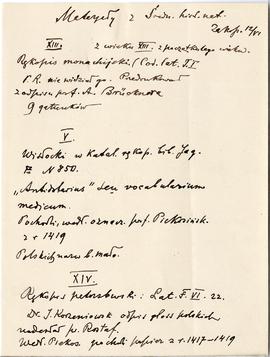 Materyały z Średn. hist. nat.
Zakop. 12/VI
XIII. z wieku XIII. z początkiem wieku.
Rękopis monachijski (Cod. lat.
P. R. nie widział go. Przedrukował
z odpisu prof. A. Brücknera
9 gatunków
V.
Wisłocki w Katal. rękop. bib. Jag.
N 850.
"Antidotarius" seu vocabularium
medicum.
Pochodzi, wedł. oznacz. prof. Piekosińsk.
z r 1419
Polskich nazw b. mało.
XIV.
Rękopis petersburski: Lat. F. VI. 22.
Dr. J. Korzeniowski odpis gloss polskich
nadesłał pr. Rostaf.
Wedł. Piekos. pochodzi papier z r. 1417–1419